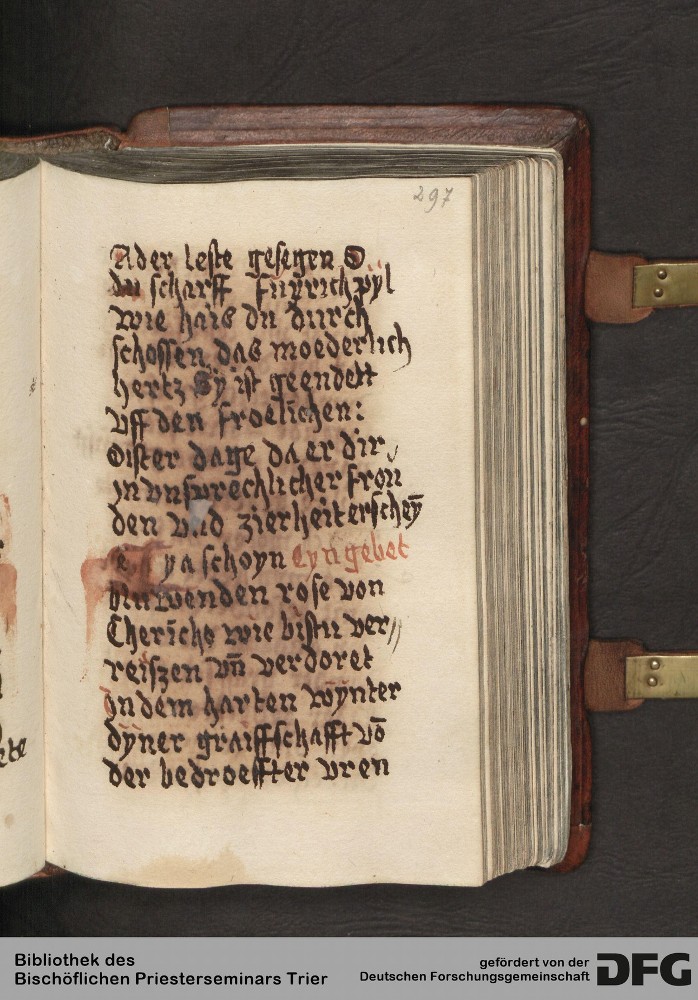 297
Ader leste gesegen O
du scharff fuyrich pÿl
wie hais du durch
schossen das moederlich
hertz Sÿ ist geendett
Vff den froelichen:
Oister dage da er dir,
in vnsprechlicher fron
den vnd zierheit erscheÿ
ya schoyn Eyn gebet
wenden rose von
Chericho wie bistu ver//
reiszen vn̄ verdoret
in dem harten wÿnter
dyner graiffschafft vō
der bedroeffter vren
Bibliothek des
Bischöflichen Priesterseminars Trier
gefördert von der
Deutschen Forschungsgemeinschaft
DFG